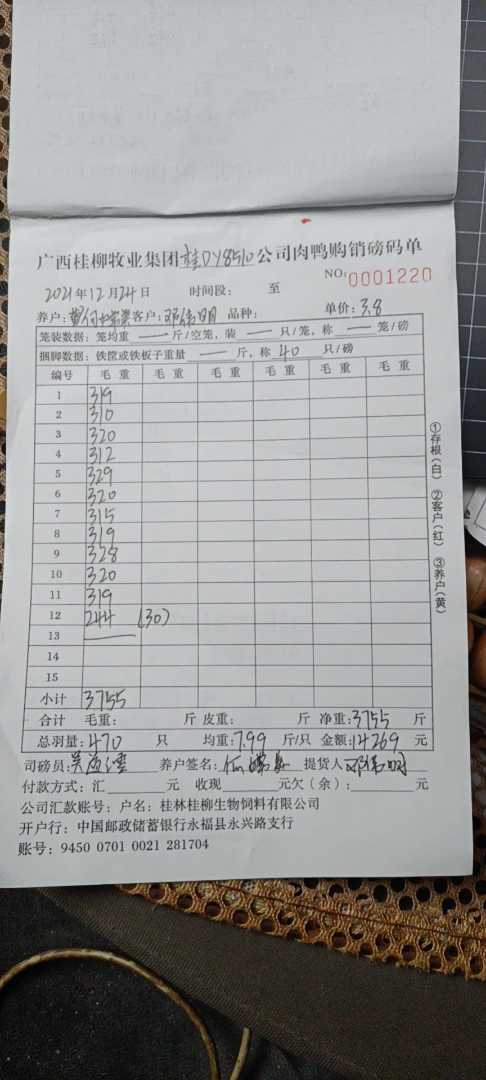 广西桂柳牧业集团桂DY8510公司肉鸭购销磅码单
NO:0001220
2021年12月24日 时间段: 至
养户: 客户:邓伟明 品种: 单价:3.8
笼装数据:笼均重 — 斤/空笼,装 — 只/笼,称 — 笼/磅
捆脚数据:铁篦或铁板子重量 — 斤,称 40 只/磅
编号 毛重 毛重 毛重 毛重 毛重 毛重
1 319
2 310
3 320
4 312
5 329
6 320
7 315
8 319
9 328
10 320
11 319
12 244 (30)
13 —
14
15
小计 3755
合计 毛重: 斤 皮重: 斤 净重:3755 斤
总羽量:470 只 均重:7.99 斤/只 金额:14269 元
司磅员: 养户签名: 提货人邓伟明
付款方式:汇 元 收现 元欠(余): 元
公司汇款账号:户名:桂林桂柳生物饲料有限公司
开户行:中国邮政储蓄银行永福县永兴路支行
账号:9450 0701 0021 281704
①存根(白) ②客户(红) ③养户(黄)